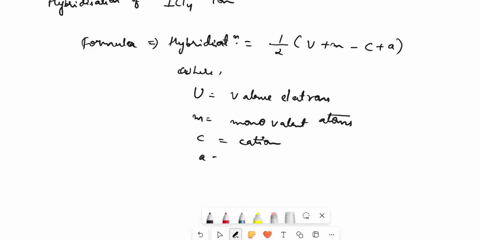 Hybridisation of ICl4 ion
Formula ⇒ Hybridiatn: = 1/2 (V + m - C + a)
where,
V = valene eletrons
m = mono valent atoms
C = cation
a =